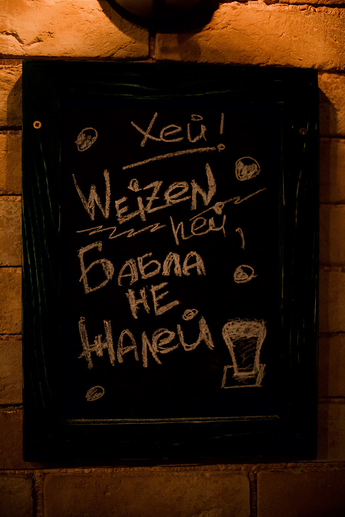 Хей!
WEIZEN
пей,
БАБЛА
НЕ
ЖАЛЕЙ